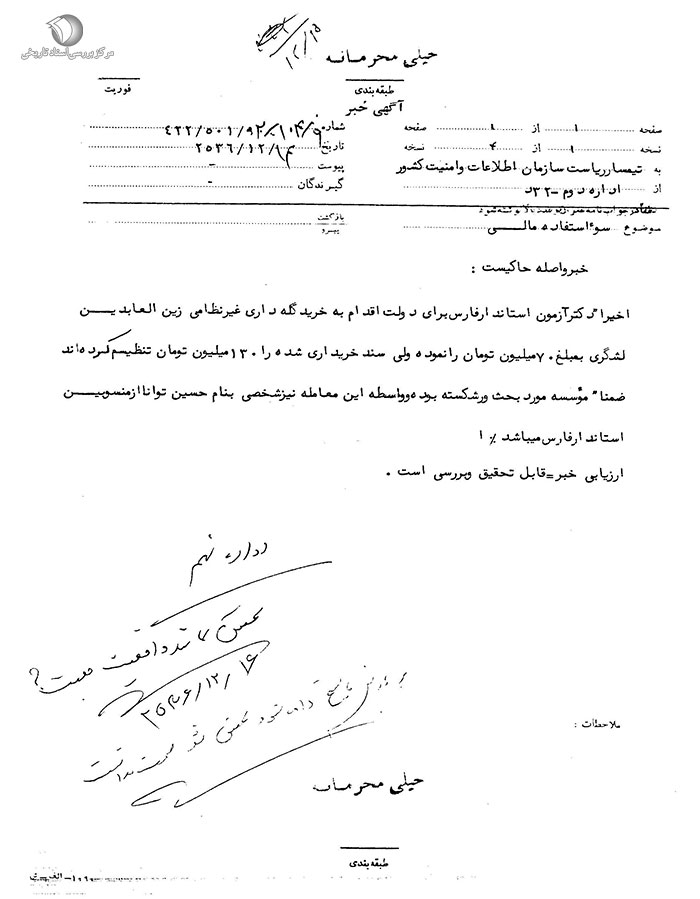 مرکز بررسی اسناد تاریخی
۱۲/۱۵
خیلی محرمانه
طبقه‌بندی
فوریت
آگهی خبر
صفحه ۱ از ۱ صفحه
شماره ۴۲۲/۵۰۱/۹۲/۱۰۳/۹
نسخه ۱ از ۴ نسخه
تاریخ ۲۵۳۶/۱۲/۱۴
به تیمسار ریاست سازمان اطلاعات وامنیت کشور
پیوست -
از اداره دوم -۳۲د
گیرندگان -
موضوع سوءاستفاده مالی
بازگشت
پیرو
خبرواصله حاکیست :
اخیرا دکترآزمون استاندارفارس برای دولت اقدام به خریدگله داری غیرنظامی زین العابدین
لشگری بمبلغ ۷۰میلیون تومان رانموده ولی سند خریداری شده را ۱۳۰میلیون تومان تنظیم کرده‌اند
ضمنا" مؤسسه مورد بحث ورشکسته بوده وواسطه این معامله نیزشخصی بنام حسین توانا ازمنسوبین
استاندارفارس میباشد ٪ ا
ارزیابی خبر=قابل تحقیق وبررسی است .
اداره نهم
واقعیت چیست؟
۲۵۳۶/۱۲/۱۶
داده شود
ملاحظات :
خیلی محرمانه
طبقه‌بندی